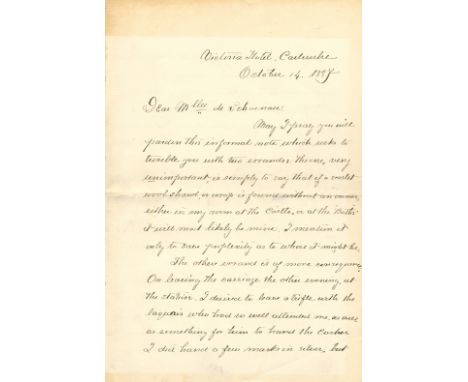 Victoria Hotel, Carlsruhe
October 14. 1887
Dear Mlle de Schoenau
May I pray you will
pardon this informal note which seeks to
trouble you with two errands theirs, very
unimportant, is simply to say that if a scarlet
wool shawl, or wrap is found without an owner,
either in my room at the Castle, or at the Baths
it will most likely be mine. I mention it
only to save perplexity as to whose it might be.
The other errand is of more consequence
On leaving the carriage the other evening, at
the station, I desired to leave a trifle with the
laquais who had so well attended me, as well
as something for him to hand the Cocher
I did hand a few marks in silver, but